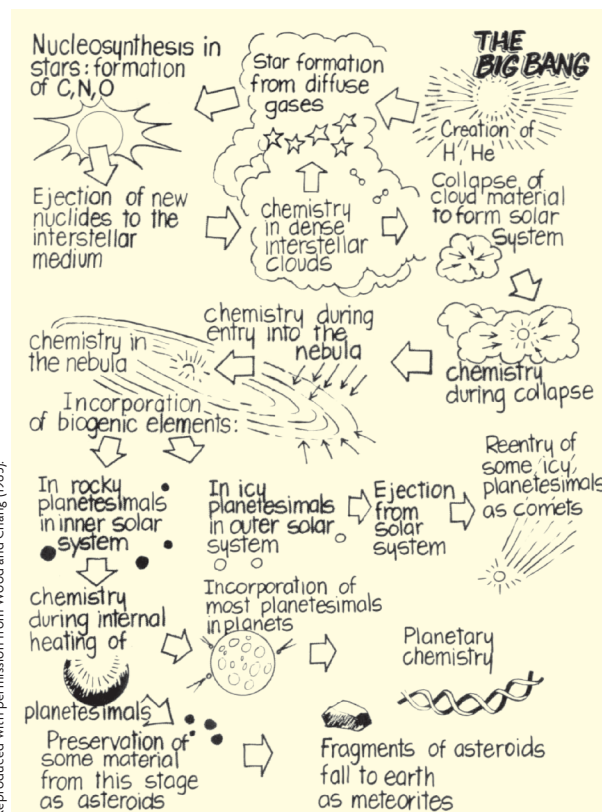 THE
BIG BANG
Creation of
H, He
Star formation
from diffuse
gases
Nucleosynthesis in
stars: formation
of C,N,O
Ejection of new
nuclides to the
interstellar
medium
chemistry
in dense
interstellar
clouds
Collapse of
cloud material
to form solar
System
chemistry
during collapse
chemistry during
entry into the
nebula
chemistry in
the nebula
Incorporation
of biogenic elements:
In rocky
planetesimals
in inner solar
system
In icy
planetesimals
in outer solar
system
Ejection
from
solar
system
Reentry of
some icy
planetesimals
as comets
chemistry
during internal
heating of
planetesimals
Incorporation of
most planetesimals
in planets
Planetary
chemistry
Preservation of
some material
from this stage
as asteroids
Fragments of asteroids
fall to earth
as meteorites
Reproduced with permission from Wood and Chang (1985).